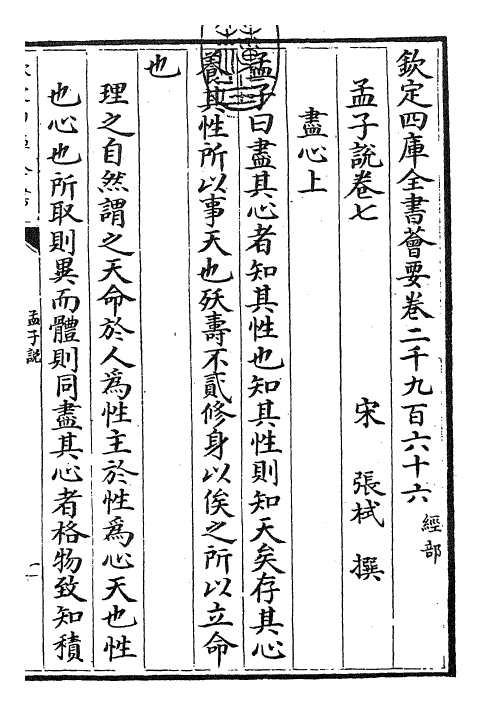 欽定四庫全書薈要卷二千九百六十六 經部
孟子說卷七 宋 張栻 撰
盡心上
孟子曰盡其心者知其性也知其性則知天矣存其心
養其性所以事天也殀壽不貳修身以俟之所以立命
也
理之自然謂之天命於人為性主於性為心天也性
也心也所取則異而體則同盡其心者格物致知積
孟子說